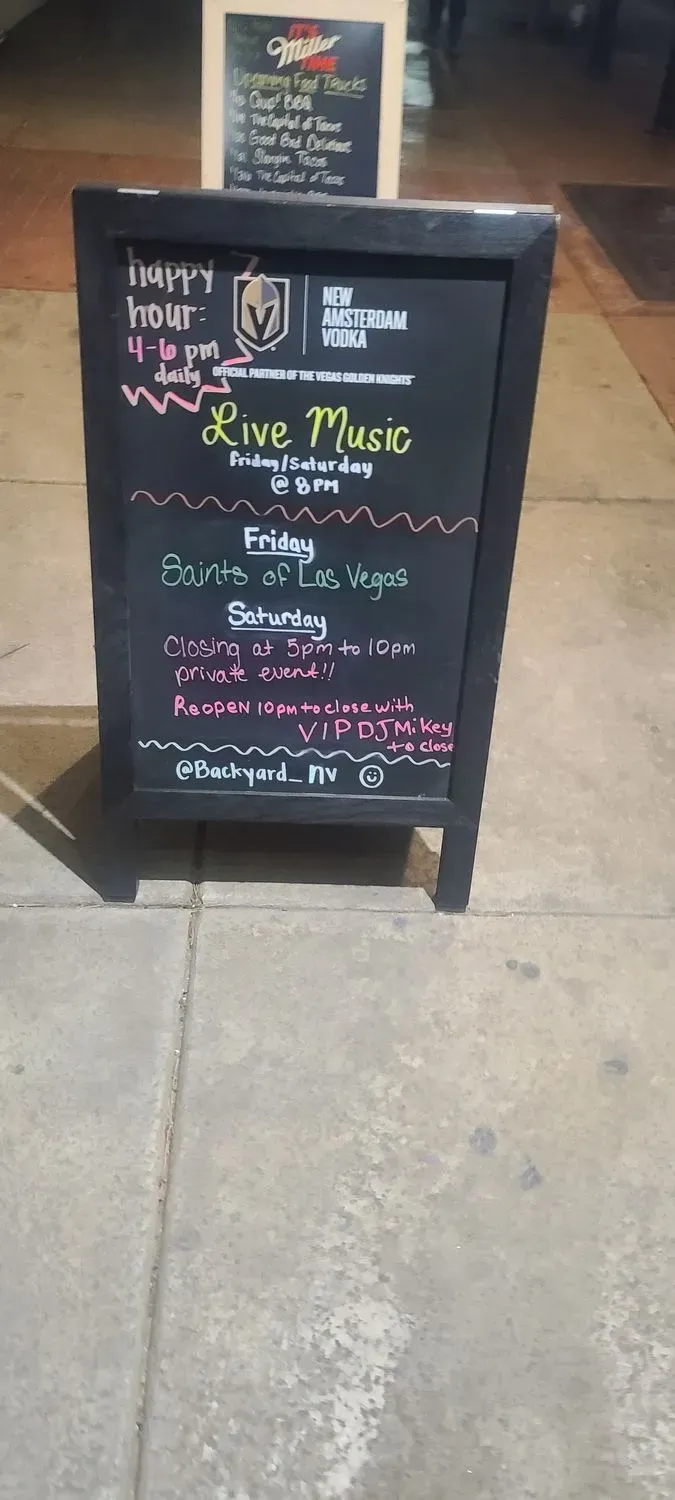 IT'S
Miller
TIME
Upcoming Food Trucks
Quip! BBQ
The Capital of Tacos
Good Bad Delicious
Slangin Tacos
The Capital of Tacos
happy
hour:
4-6 pm
daily
NEW
AMSTERDAM
VODKA
OFFICIAL PARTNER OF THE VEGAS GOLDEN KNIGHTS
Live Music
Friday/Saturday
@ 8PM
Friday
Saints of Las Vegas
Saturday
Closing at 5pm to 10pm
private event!!
Reopen 10pm to close with
VIP DJ Mikey
to close
@Backyard_nv